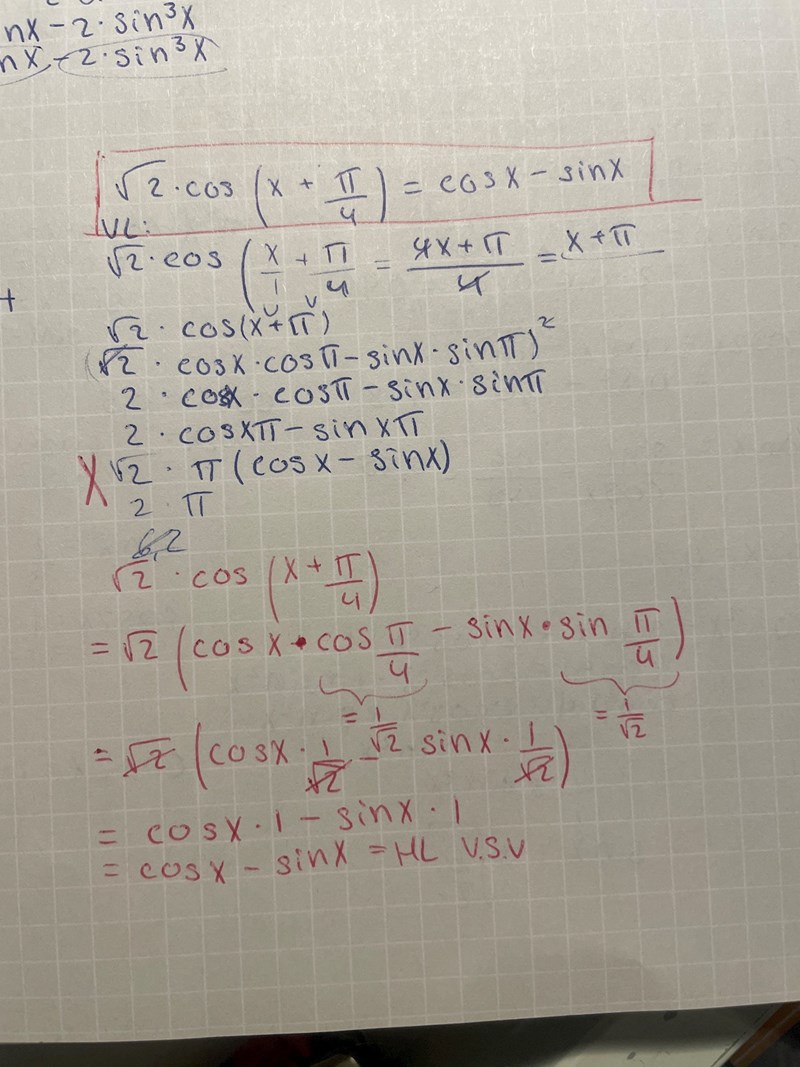 nx - 2 · sin³x
nx - 2 · sin³x
√2 · cos (x + π/4) = cosx - sinx
VL:
√2 · cos (x/1 + π/4 = 4x + π/4 = x + π
+
√2 · cos(x + π)
(√2 · cosx · cosπ - sinx · sinπ)²
2 · cosx · cosπ - sinx · sinπ
2 · cosxπ - sinxπ
X √2 · π (cosx - sinx)
2 π
6,2
√2 · cos (x + π/4)
= √2 (cos x · cos π/4 - sinx · sin π/4)
= 1/√2 = 1/√2
= √2 (cosx · 1/√2 - sinx · 1/√2)
= cosx · 1 - sinx · 1
= cosx - sinx = HL V.S.V